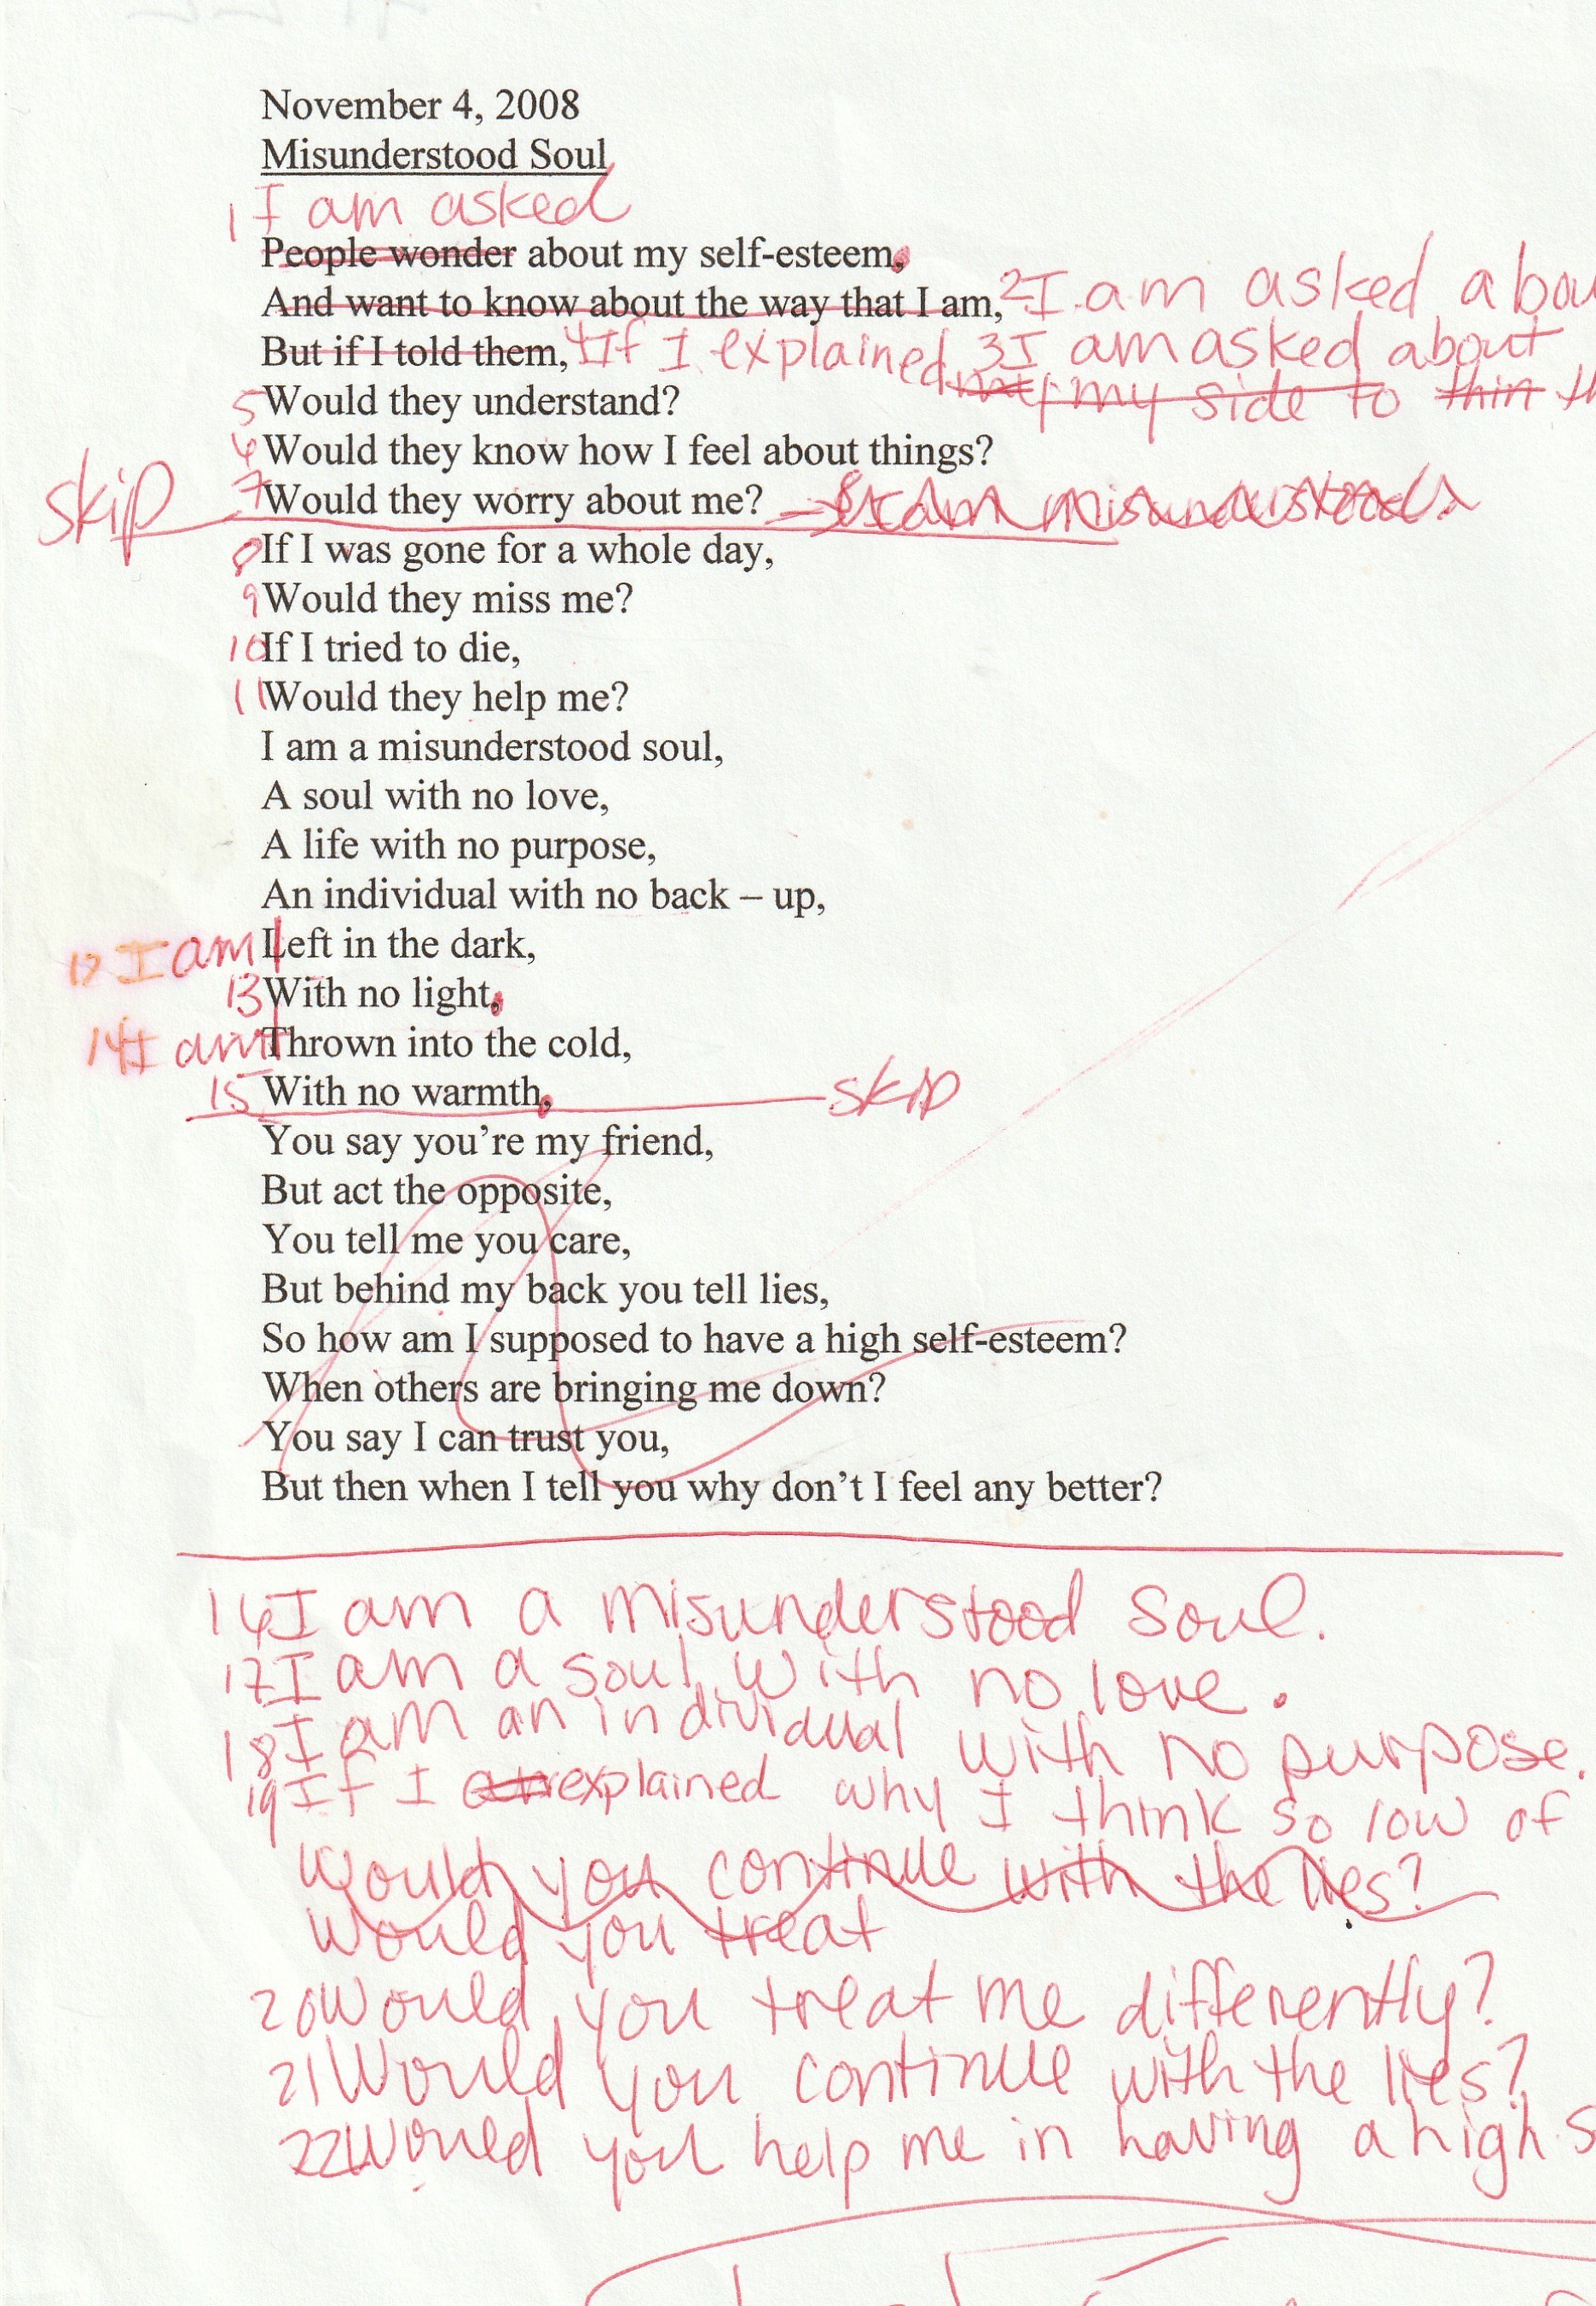 November 4, 2008
Misunderstood Soul
1 I am asked
People wonder about my self-esteem.
And want to know about the way that I am, 2 I am asked abou
But if I told them, 4 If I explained 3 I am asked about
my side to thin th
5 Would they understand?
6 Would they know how I feel about things?
skip 7 Would they worry about me? 8 I am misunderstood.
8 If I was gone for a whole day,
9 Would they miss me?
10 If I tried to die,
11 Would they help me?
I am a misunderstood soul,
A soul with no love,
A life with no purpose,
An individual with no back – up,
12 I am Left in the dark,
13 With no light.
14 I am Thrown into the cold,
15 With no warmth. skip
You say you're my friend,
But act the opposite,
You tell me you care,
But behind my back you tell lies,
So how am I supposed to have a high self-esteem?
When others are bringing me down?
You say I can trust you,
But then when I tell you why don't I feel any better?
16 I am a misunderstood soul.
17 I am a soul with no love.
18 I am an individual with no purpose.
19 If I explained why I think so low of
Would you continue with the lies?
Would you treat
20 Would you treat me differently?
21 Would you continue with the lies?
22 Would you help me in having a high s